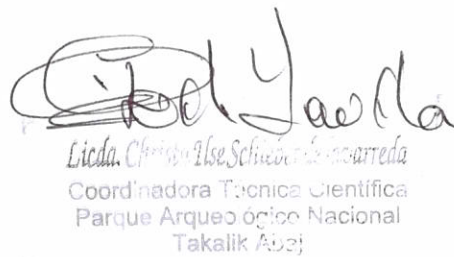 Licda. Christa Ilse Schieber de Lavarreda
Coordinadora Técnica Científica
Parque Arqueológico Nacional
Takalik Abaj